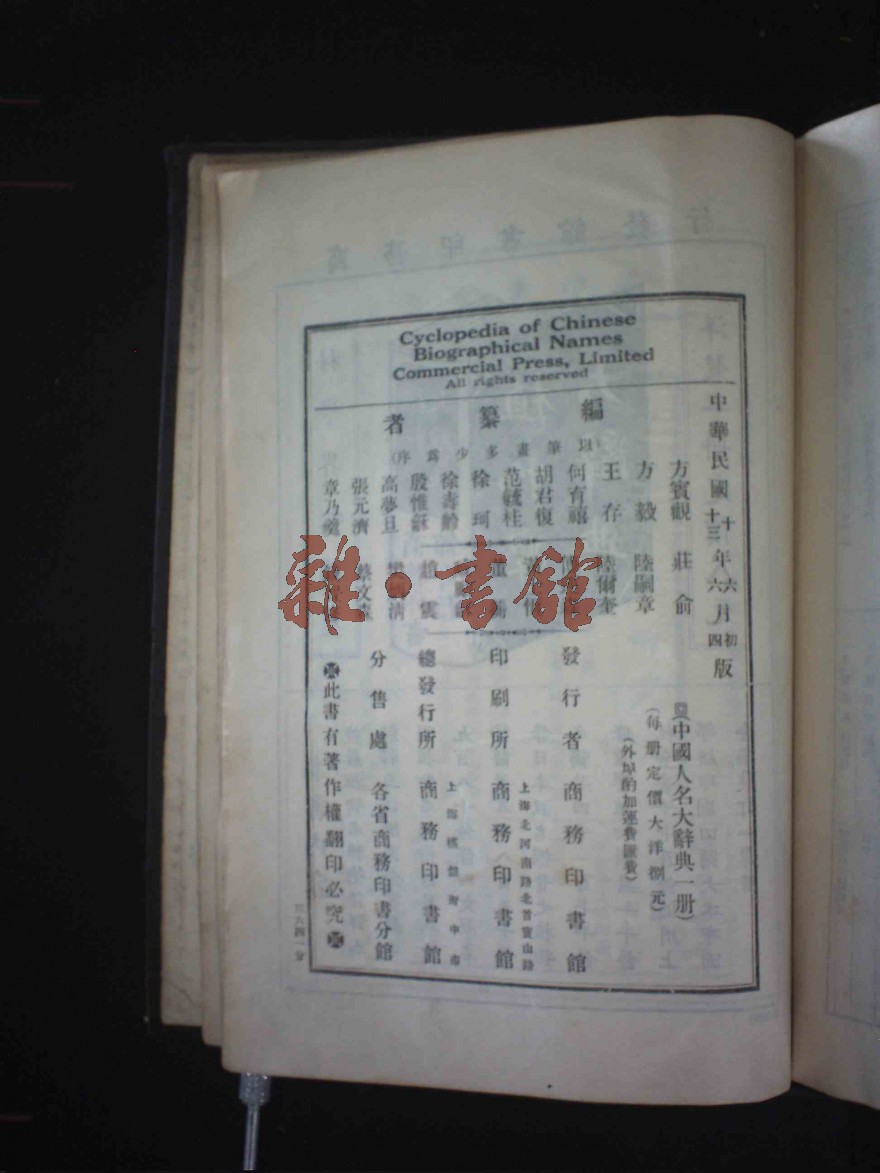 Cyclopedia of Chinese
Biographical Names
Commercial Press, Limited
All rights reserved
中華民國十年六月初版
十三 六 四
(中國人名大辭典一册)
(每册定價大洋捌元)
(外埠酌加運費匯費)
編纂者
(以筆畫多少爲序)
方賓觀
方毅
王存
何有禧
胡君復
范毓桂
徐珂
徐壽齡
殷惟龢
高夢旦
張元濟
章乃
莊俞
陸嗣章
陸爾奎
趙震
蔡文
發行者 商務印書館
上海北河南路北首寶山路
印刷所 商務印書館
上海棋盤街中市
總發行所 商務印書館
分售處 各省商務印書分館
此書有著作權翻印必究
雜·書館